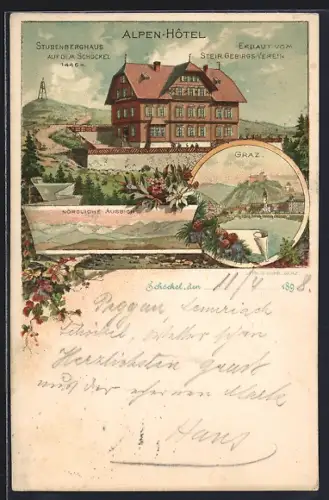 ALPEN-HÔTEL
STUBENBERGHAUS
AUF DEM SCHÖCKEL
1446 M.
ERBAUT VOM
STEIR. GEBIRGS-VEREIN
GRAZ.
NÖRDLICHE AUSSICHT
Schöckel, den 11/4 1898.
Peggau, Semriach
Schöckel, Wetter schön
Herzlichsten Gruß
aus der
Hans